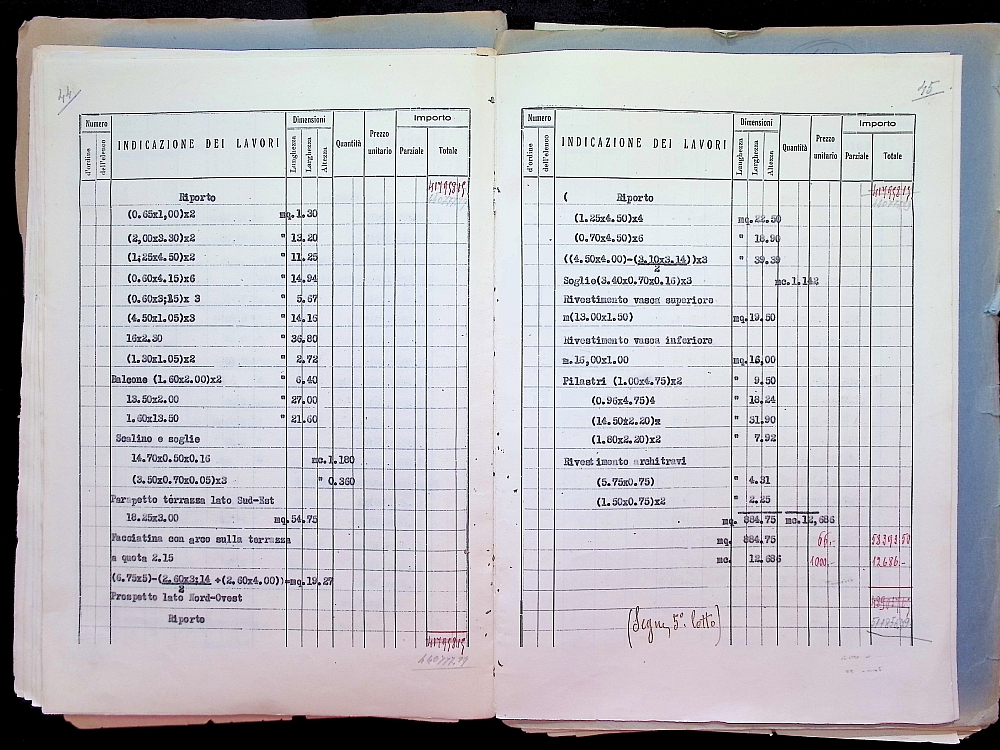 44
Numero
d'ordine
dell'elenco
INDICAZIONE DEI LAVORI
Dimensioni
Lunghezza
Larghezza
Altezza
Quantità
Prezzo
unitario
Importo
Parziale
Totale
Riporto
(0.65x1,00)x2 mq.1.30
(2,00x3.30)x2 " 13.20
(1;25x4.50)x2 " 11.25
(0.60x4.15)x6 " 14.94
(0.60x3;15)x 3 " 5.67
(4.50x1.05)x3 " 14.16
16x2.30 " 36.80
(1.30x1.05)x2 " 2.72
Balcone (1.60x2.00)x2 " 6.40
13.50x2.00 " 27.00
1.60x13.50 " 21.60
Scalino e soglie
14.70x0.50x0.16 mc.1.180
(3.50x0.70x0.05)x3 " 0.360
Parapetto terrazza lato Sud-Est
18.25x3.00 mq.54.75
Facciatina con arco sulla terrazza
a quota 2.15
(6.75x5)-(2.60x3;14 +(2.60x4.00))=mq.19.27
2
Prospetto lato Nord-Ovest
Riporto
45
Numero
d'ordine
dell'elenco
INDICAZIONE DEI LAVORI
Dimensioni
Lunghezza
Larghezza
Altezza
Quantità
Prezzo
unitario
Importo
Parziale
Totale
( Riporto
(1.25x4.50)x4 mq.22.50
(0.70x4.50)x6 " 18.90
((4.50x4.00)-(3.10x3.14))x3 " 39.39
2
Soglie(3.40x0.70x0.16)x3 mc.1.142
Rivestimento vasca superiore
m(13.00x1.50) mq.19.50
Rivestimento vasca inferiore
m.16,00x1.00 mq.16,00
Pilastri (1.00x4.75)x2 " 9.50
(0.96x4.75)4 " 18.24
(14.50x2.20)x " 31.90
(1.80x2.20)x2 " 7.92
Rivestimento architravi
(5.75x0.75) " 4.31
(1.50x0.75)x2 " 2.25
mq. 884.75 mc.12,686
mq. 884.75 66.- 58393 50
mc. 12.686 1000.- 12686.-
(Segue 5° lotto)